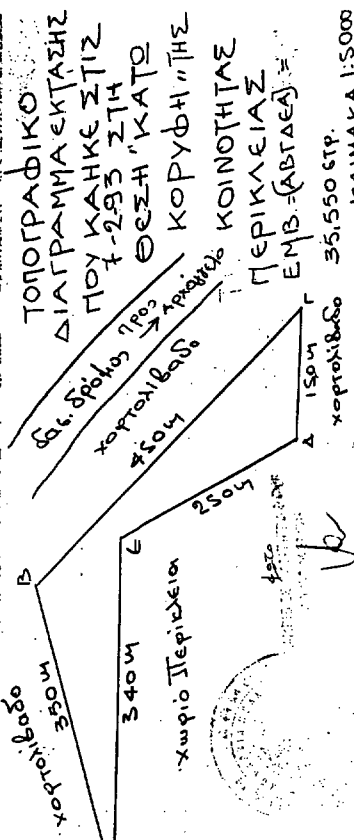 ΤΟΠΟΓΡΑΦΙΚΟ
ΔΙΑΓΡΑΜΜΑ ΕΚΤΑΣΗΣ
ΠΟΥ ΚΑΗΚΕ ΣΤΙΣ
7-2-93 ΣΤΗ
ΘΕΣΗ "ΚΑΤΩ
ΚΟΡΥΦΗ" ΤΗΣ
ΚΟΙΝΟΤΗΤΑΣ
ΠΕΡΙΚΛΕΙΑΣ
ΕΜΒ.=(ΑΒΓΔΕΑ)=
35,550 στρ.
ΚΛΙΜΑΚΑ 1:5000
δας. δρόμος προς
→ Αρχάγγελο
χορτολίβαδο
Β
χορτολίβαδο
350m
450m
Γ
Ε
340m
250m
150m
Δ
χορτολίβαδο
χωριό Περίκλεια